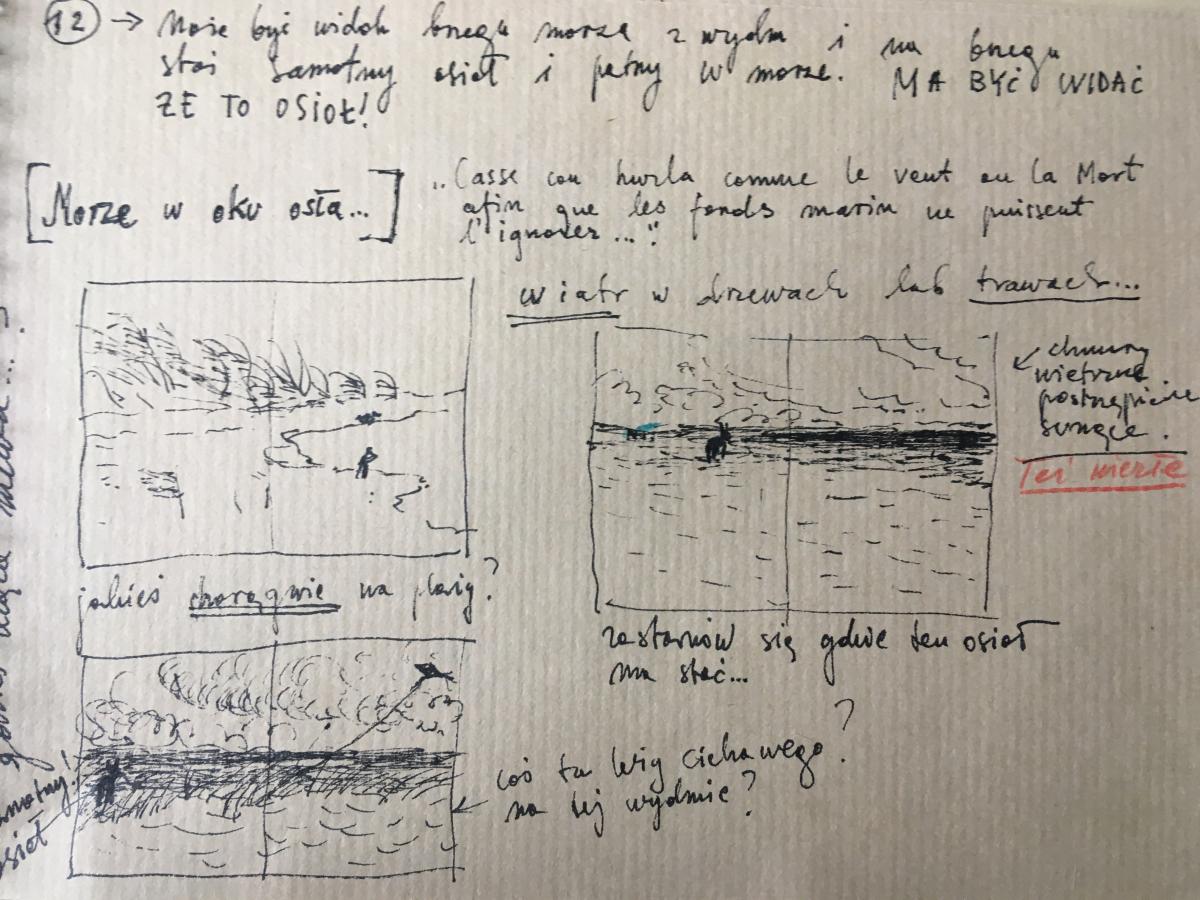 12 → Może być widok brzegu morza z wydm i na brzegu
stoi samotny osioł i patrzy w morze. MA BYĆ WIDAĆ
ŻE TO OSIOŁ!
[Morze w oku osła...]
„Casse cou hurla comme le vent ou la Mort
afin que les fonds marin ne puissent
l'ignorer..."
wiatr w drzewach lub trawach...
chmury
wietrzne
sunące.
jakieś chorągwie na plaży?
zastanów się gdzie ten osioł
ma stać...
coś tu leży ciekawego?
na tej wydmie?
samotny!
osioł